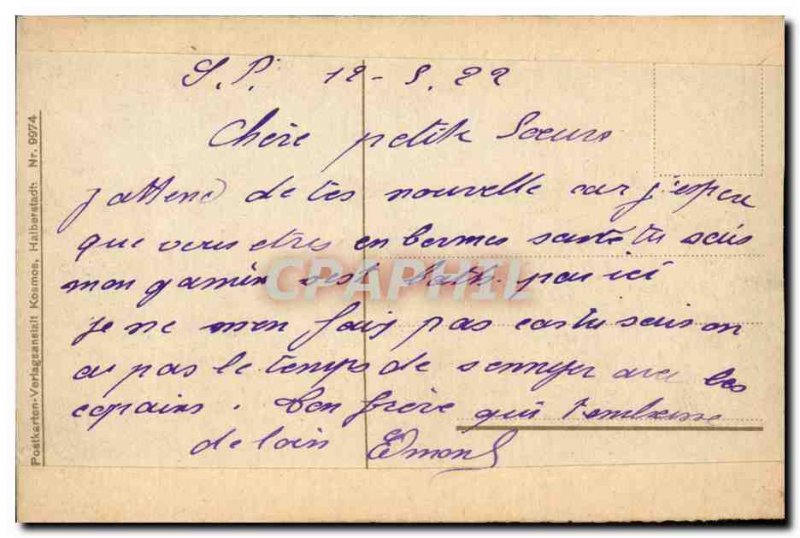 S.P. 12-5.22
Chère petite Soeurs
j'attend de tes nouvelle car j'espere
que vous etres en bonnes santé tu sais
mon gamin s'est bath par ici
je ne men fais pas car tu sais on
as pas le temps de sennyer avec les
copains. Ton frère qui t'embrasse
de loin Edmond
CPARPHIL
Postkarten-Verlagsanstalt Kosmos, Halberstadt. Nr. 9974